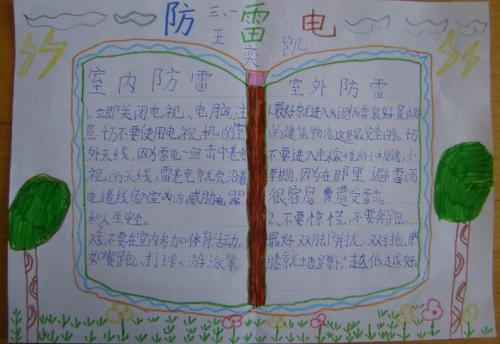 防雷电
三、一
王奕凯
室内防雷
1.立即关闭电视、电脑,注
意切不要使用电视机的室
外天线,因为雷电一旦击中电
视的天线,雷电就会沿着
电缆线传入室内,威胁电器
和人生安全。
2.不要在室内参加体育活动,
如赛跑、打球、游泳等
室外防雷
1.最好就进入
的建筑物
不要进入
草棚,因为在那里避雷雨
很容易遭受雷击
2.不要惊慌,不要奔跑,
最好双脚并拢,双手抱
膝就地蹲下,越低越好。